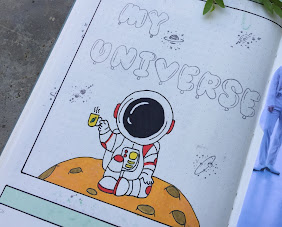 MY
UNIVERSE